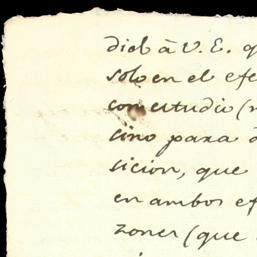 did à V. E. q
solo en el efe
con estudio (n
cino para d
sicion, que
en ambos ef
zones (que